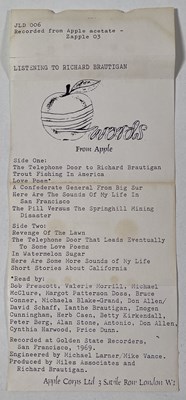 JLB 006
Recorded from Apple acetate -
Zapple 03
LISTENING TO RICHARD BRAUTIGAN
words
From Apple
Side One:
The Telephone Door to Richard Brautigan
Trout Fishing In America
Love Poem*
A Confederate General From Big Sur
Here Are The Sounds Of My Life In
San Francisco
The Pill Versus The Springhill Mining
Disaster
Side Two:
Revenge Of The Lawn
The Telephone Door That Leads Eventually
To Some Love Poems
In Watermelon Sugar
Here Are Some More Sounds of My Life
Short Stories About California
*Read by:
Bob Prescott, Valerie Morrill, Michael
McClure, Margot Patterson Doss, Bruce
Conner, Michaela Blake-Grand, Don Allen/
David Schaff, Ianthe Brautigan, Imogen
Cunningham, Herb Caen, Betty Kirkendall,
Peter Berg, Alan Stone, Antonio, Don Allen,
Cynthia Harwood, Price Dunn.
Recorded at Golden State Recorders,
San Francisco, 1969.
Engineered by Michael Larner/Mike Vance.
Produced by Miles Associates and
Richard Brautigan.
Apple Corps Ltd 3 Savile Row London W1